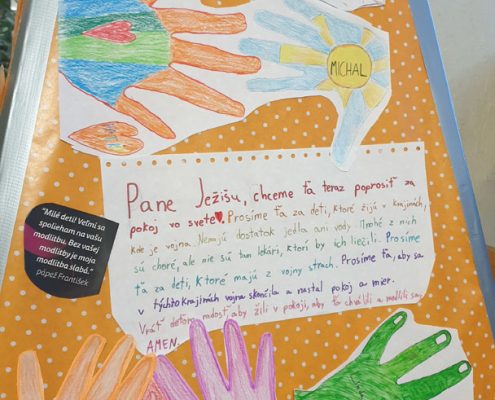 MICHAL
Pane Ježišu, chceme ťa teraz poprosiť za
pokoj vo svete Prosíme ťa za deti, ktoré žijú v krajinách,
kde je vojna. Nemajú dostatok jedla ani vody. Mnohé z nich
sú choré, ale nie sú tam lekári, ktorí by ich liečili. Prosíme
ťa za deti, ktoré majú z vojny strach. Prosíme ťa, aby sa
v týchto krajinách vojna skončila a nastal pokoj a mier.
Vráť deťom radosť, aby žili v pokoji, aby ťa chválili a modlili sa.
AMEN.
"Milé deti! Veľmi sa
spolieham na vašu
modlitbu. Bez vašej
modlitby je moja
modlitba slabá."
pápež František